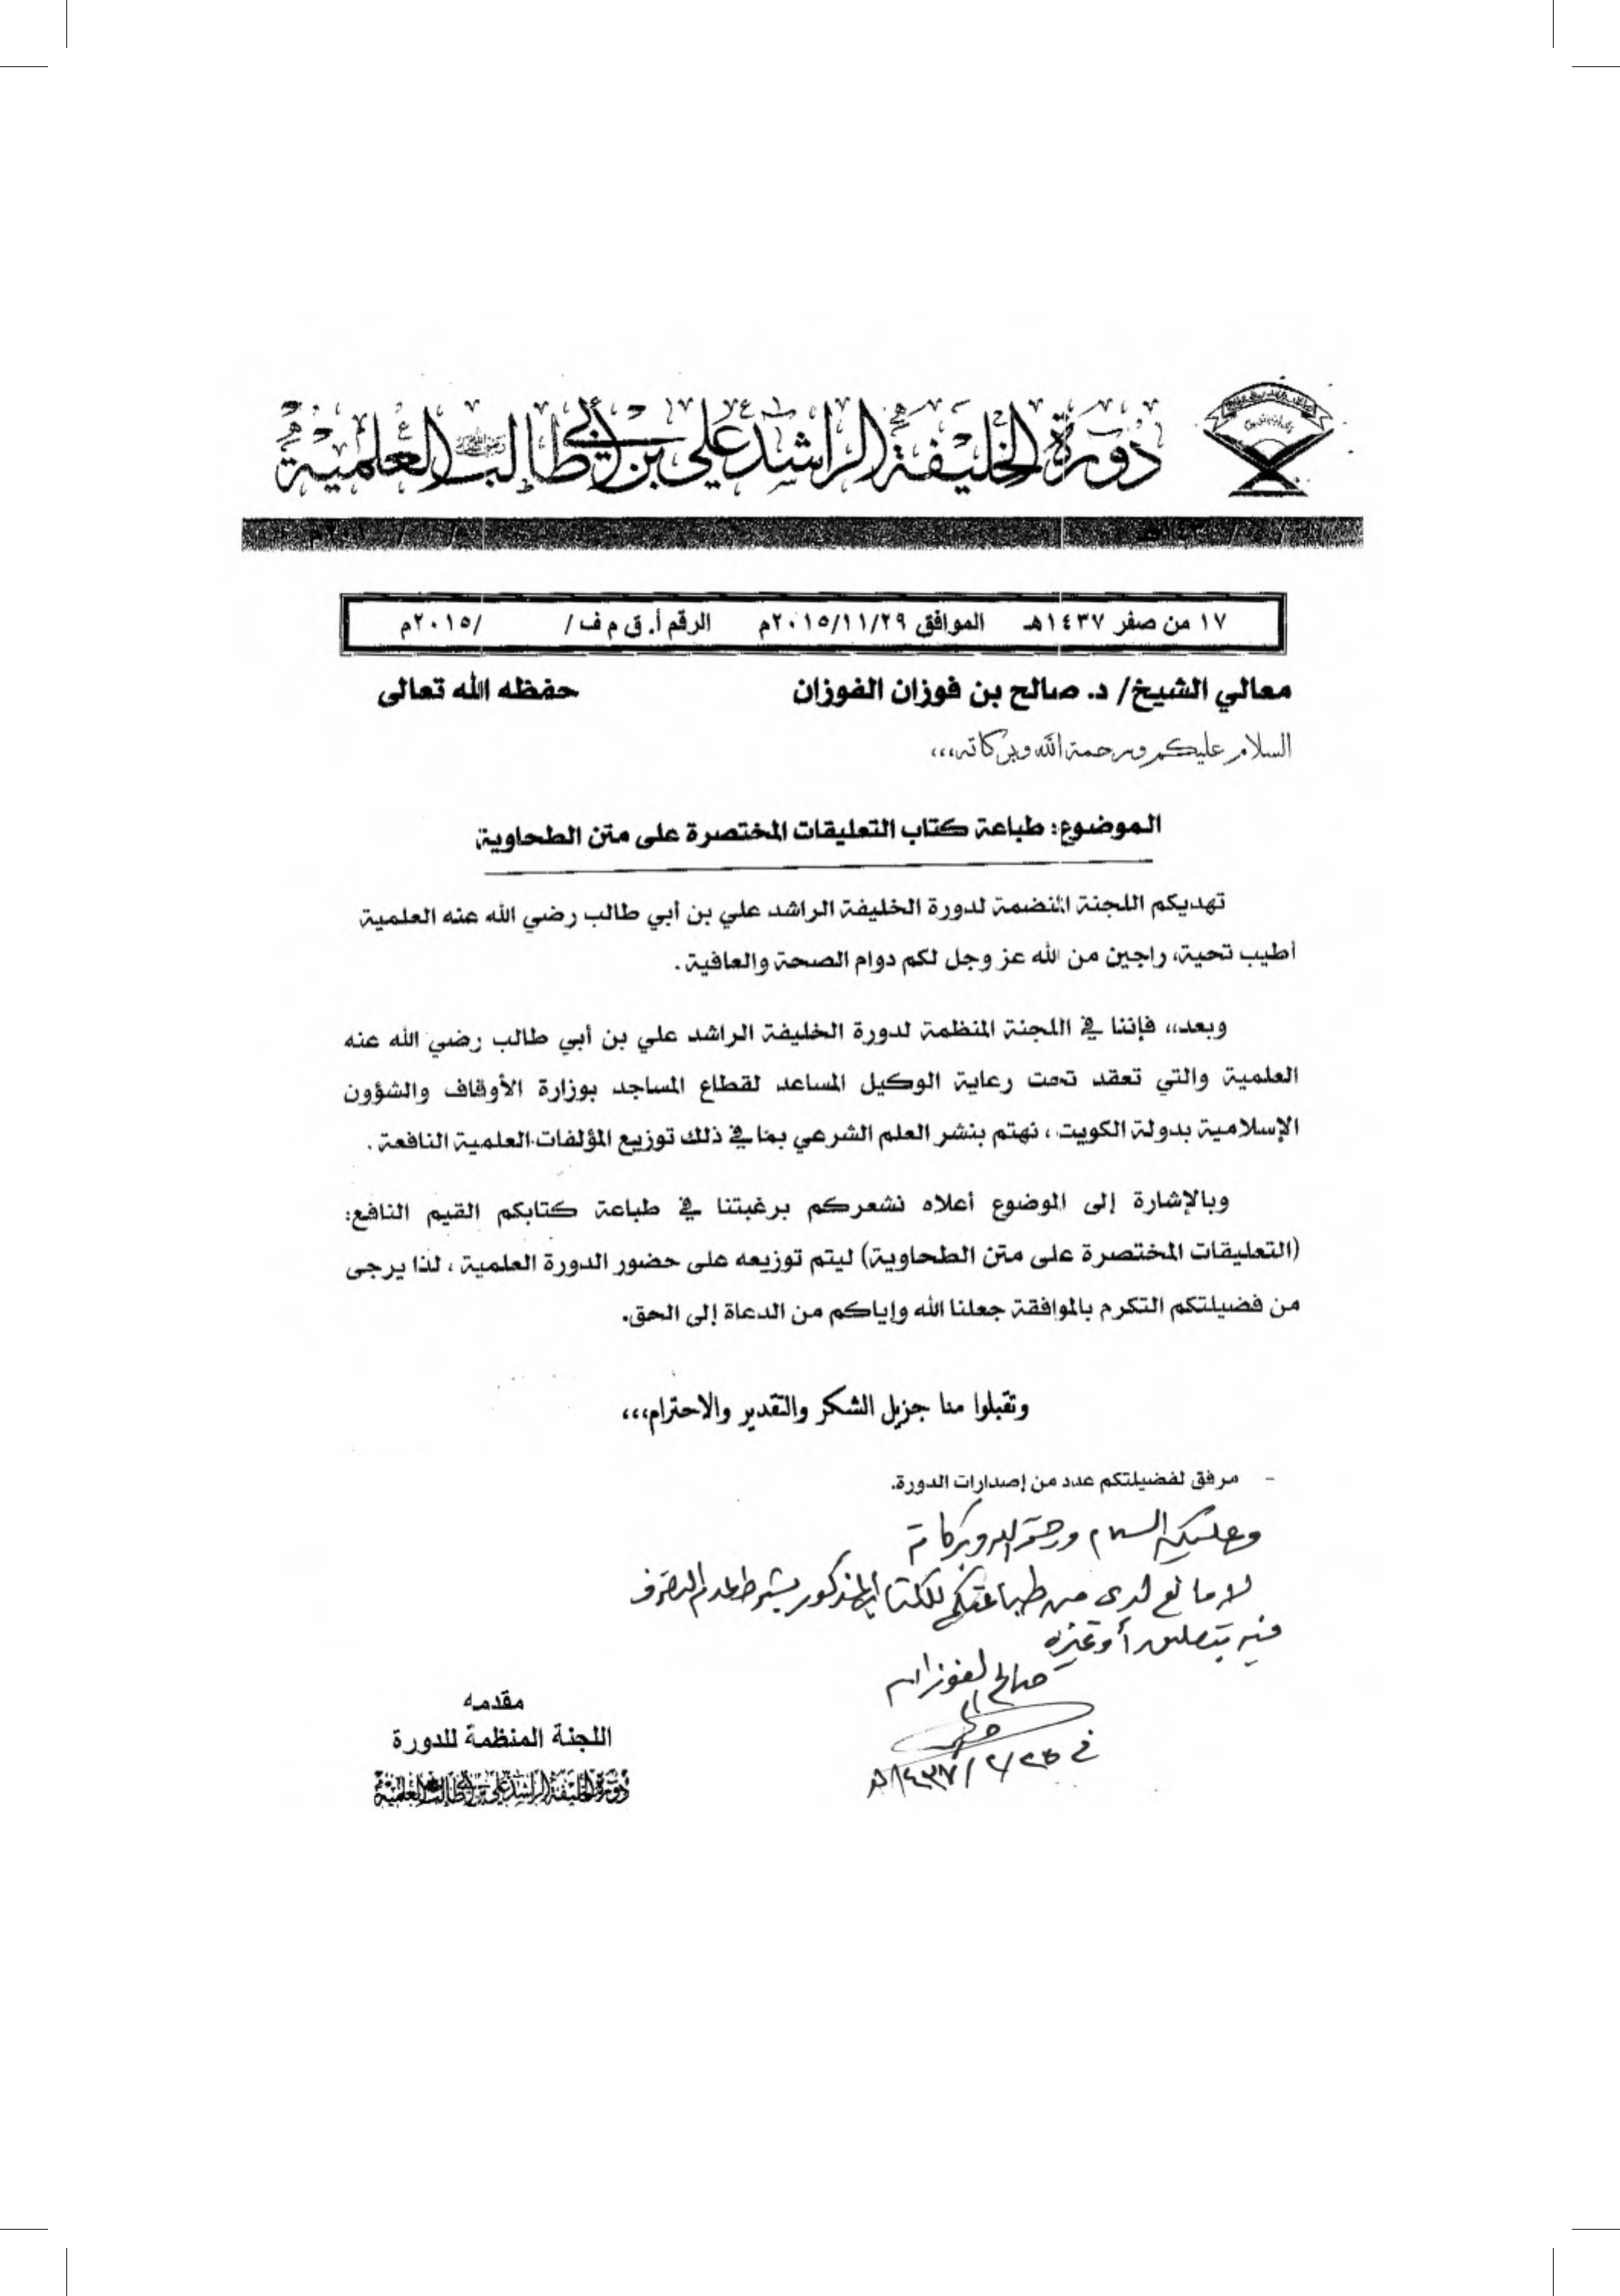 دورة الخليفة الراشد علي بن أبي طالب العلمية
١٧ من صفر ١٤٣٧هـ الموافق ٢٠١٥/١١/٢٩م الرقم أ. ق م ف / /٢٠١٥م
معالي الشيخ/ د. صالح بن فوزان الفوزان حفظه الله تعالى
السلام عليكم ورحمة الله وبركاته،،،
الموضوع: طباعة كتاب التعليقات المختصرة على متن الطحاوية
تهديكم اللجنة المنضمة لدورة الخليفة الراشد علي بن أبي طالب رضي الله عنه العلمية
أطيب تحية، راجين من الله عز وجل لكم دوام الصحة والعافية.
وبعد،، فإننا في اللجنة المنظمة لدورة الخليفة الراشد علي بن أبي طالب رضي الله عنه
العلمية والتي تعقد تحت رعاية الوكيل المساعد لقطاع المساجد بوزارة الأوقاف والشؤون
الإسلامية بدولة الكويت ، نهتم بنشر العلم الشرعي بما في ذلك توزيع المؤلفات العلمية النافعة .
وبالإشارة إلى الموضوع أعلاه نشعركم برغبتنا في طباعة كتابكم القيم النافع:
(التعليقات المختصرة على متن الطحاوية) ليتم توزيعه على حضور الدورة العلمية ، لذا يرجى
من فضيلتكم التكرم بالموافقة جعلنا الله وإياكم من الدعاة إلى الحق.
وتقبلوا منا جزيل الشكر والتقدير والاحترام،،،
- مرفق لفضيلتكم عدد من إصدارات الدورة.
وعليكم السلام ورحمة الله وبركاته
لا مانع لدي من طباعتكم للكتاب المذكور بشرط عدم التصرف
فيه بتعليق أو غيره
صالح الفوزان
في ١٤٣٧/٢/٢٥هـ
مقدمه
اللجنة المنظمة للدورة
دورة الخليفة الراشد علي بن أبي طالب العلمية